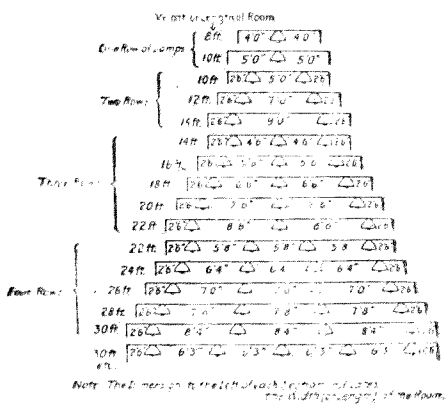 Width or Length of Room
One Row of Lamps
8 ft. 4'0" 4'0"
10 ft. 5'0" 5'0"
Two Rows
10 ft. 2'6" 5'0" 2'6
12 ft. 2'6" 7'0" 2'6
14 ft. 2'6" 9'0" 2'6
Three Rows
14 ft. 2'6" 4'6" 4'6" 2'6
16 ft. 2'6 5'6" 5'6 2'6
18 ft 2'6 6'6" 6'6" 2'6
20 ft 2'6 7'6" 7'6" 2'6
22 ft. 2'6 8'6" 8'6" 2'6
Four Rows
22 ft. 2'6" 5'8" 5'8" 5'8 2'6
24 ft. 2'6" 6'4" 6'4 6'4" 2'6
26 ft 2'6" 7'0" 7'0" 7'0" 2'6
28 ft. 2'6" 7'8" 7'8" 7'8" 2'6
30 ft 2'6 8'4" 8'4" 8'4" 2'6
30 ft 2'6 6'3" 6'3" 6'3" 6'3 2'6
etc.
Note The Dimension to the left of each Diagram indicates
the Width (or Length) of the Room